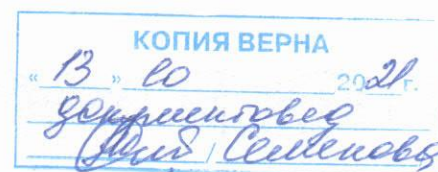 КОПИЯ ВЕРНА
« 13 » 10 2021 г.
документовед
/ Семенова